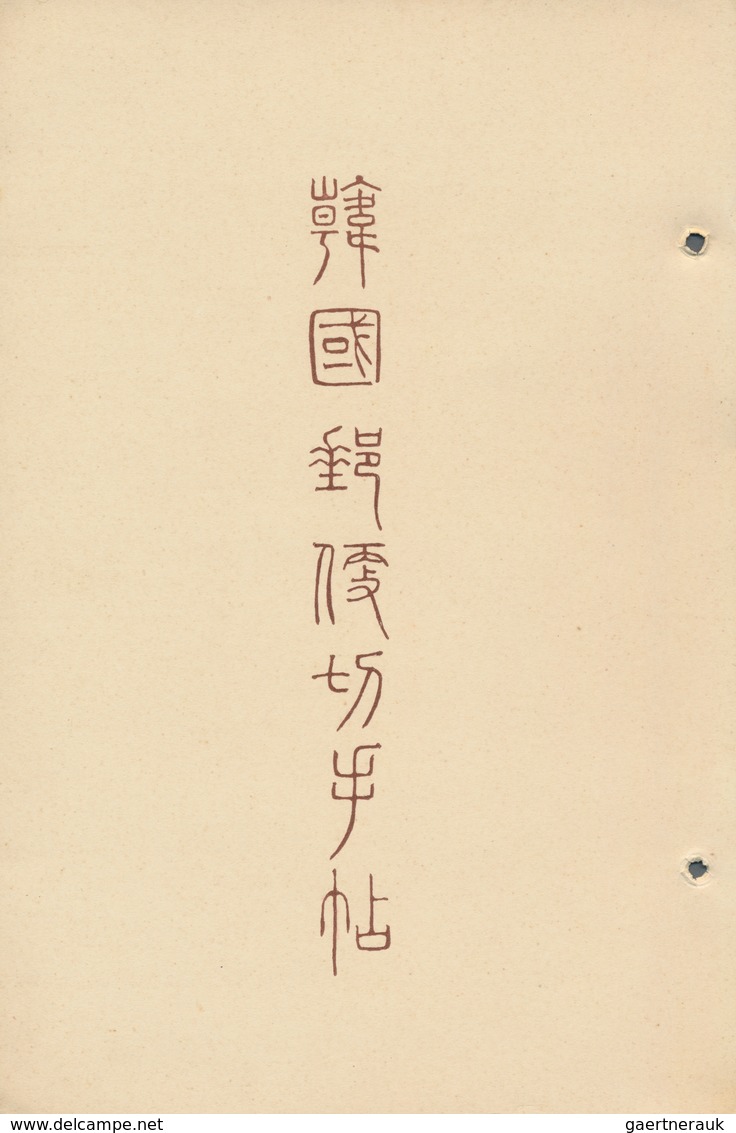 韓國郵便切手帖
www.delcampe.net
gaertnerauk